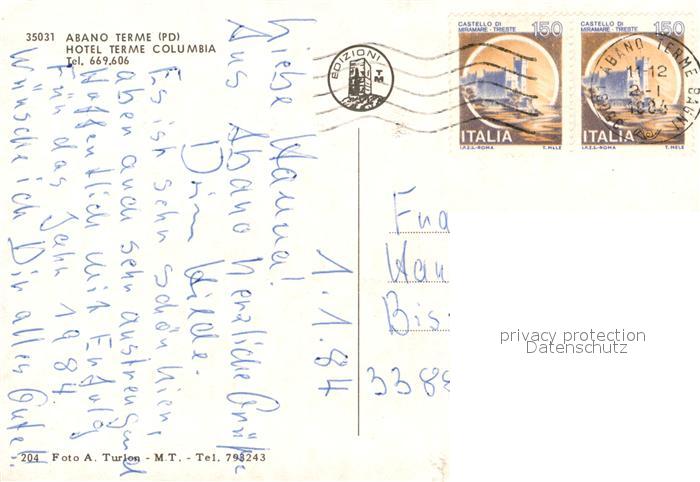 35031 ABANO TERME (PD)
HOTEL TERME COLUMBIA
Tel. 669.606
EDIZIONI
MT
CASTELLO DI
MIRAMARE - TRIESTE
150
ITALIA
I.P.Z.S.-ROMA
T. MELE
CASTELLO DI
MIRAMARE - TRIESTE
150
ITALIA
I.P.Z.S.-ROMA
T. MELE
ABANO TERME BAGNI
11-12
2-1
1984
1.1.84
Liebe Hanna!
Aus Abano herzliche Grüße
Deine Hilde.
Es ist sehr schön hier,
aber auch sehr anstrengend
Hoffentlich mit Erfolg
Für das Jahr 1984
Wünsche ich Dir alles Gute!!
Frau
Han
Bis
338
204 Foto A. Turlon - M.T. - Tel. 793243
privacy protection
Datenschutz